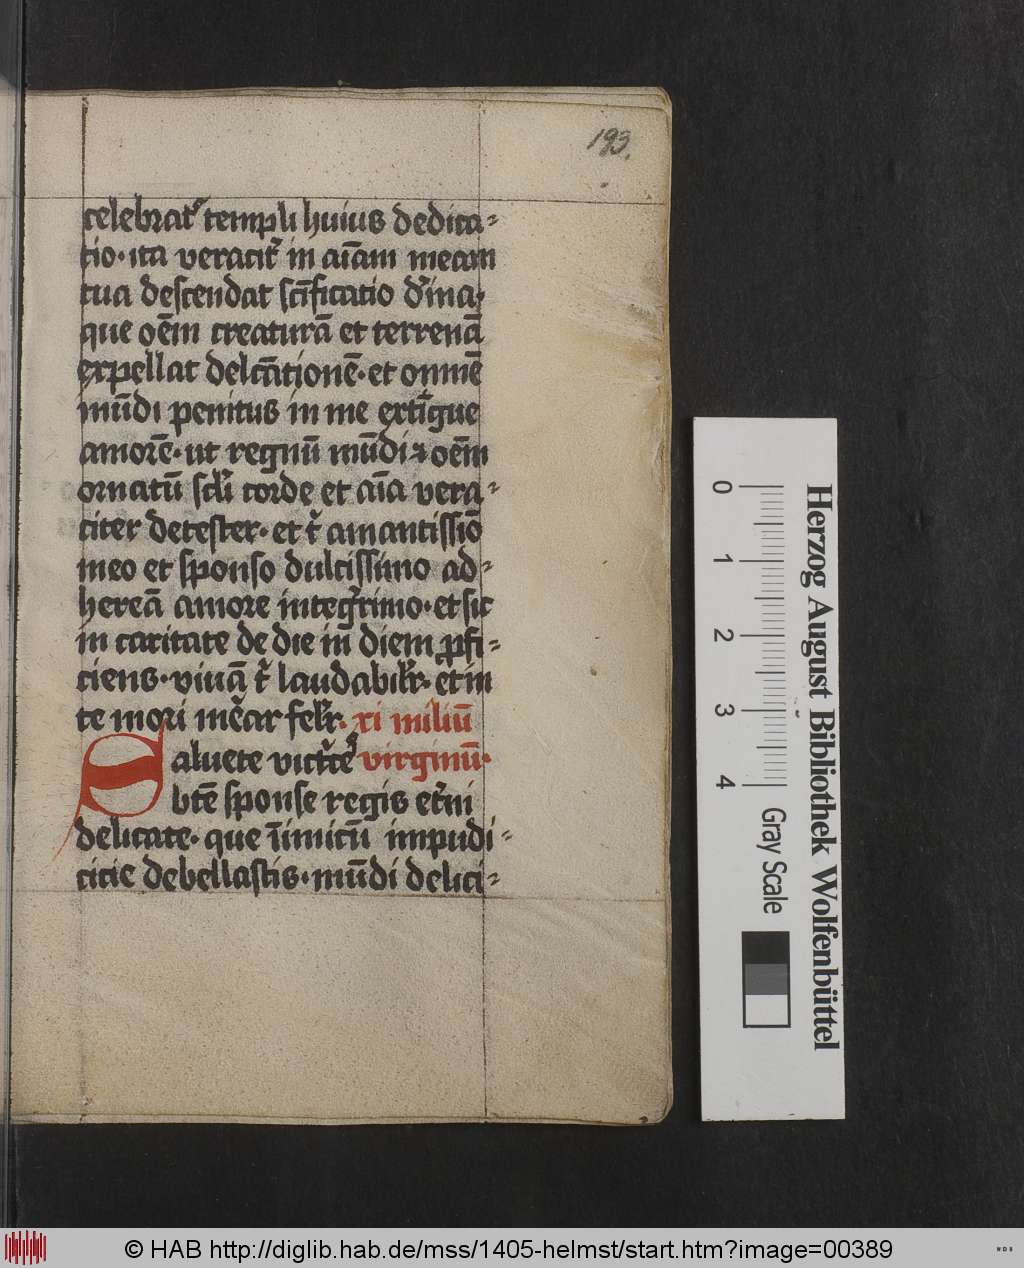 193.
celebrat᷒ templi huius dedica-
tio· ita veracit᷒ in aīam meam
tua descendat sc̄ificatio d᷒ina·
que oēm creaturā et terrenā
expellat delc̄ationē· et omnē
mūdi penitus in me extīgue
amorē· ut regnū mūdi ⁊ oēm
ornatū sc̄li corde et aīa vera-
citer detester· et t᷒ amantissīo
meo et sponso dulcissimo ad-
hereā amore integ᷒rimo· et sic
in caritate de die in diem ꝓfi-
ciens· viuā t᷒ laudabil᷒r· et in
te mori mēar fel᷒r· xi miliū
Saluete vict᷒ce᷒ virginū·
bt̄e sponse regis et᷒ni
delicate· que īimicū impudi-
citie debellastis· mūdi delici-
Herzog August Bibliothek Wolfenbüttel
0 1 2 3 4 Gray Scale
© HAB http://diglib.hab.de/mss/1405-helmst/start.htm?image=00389